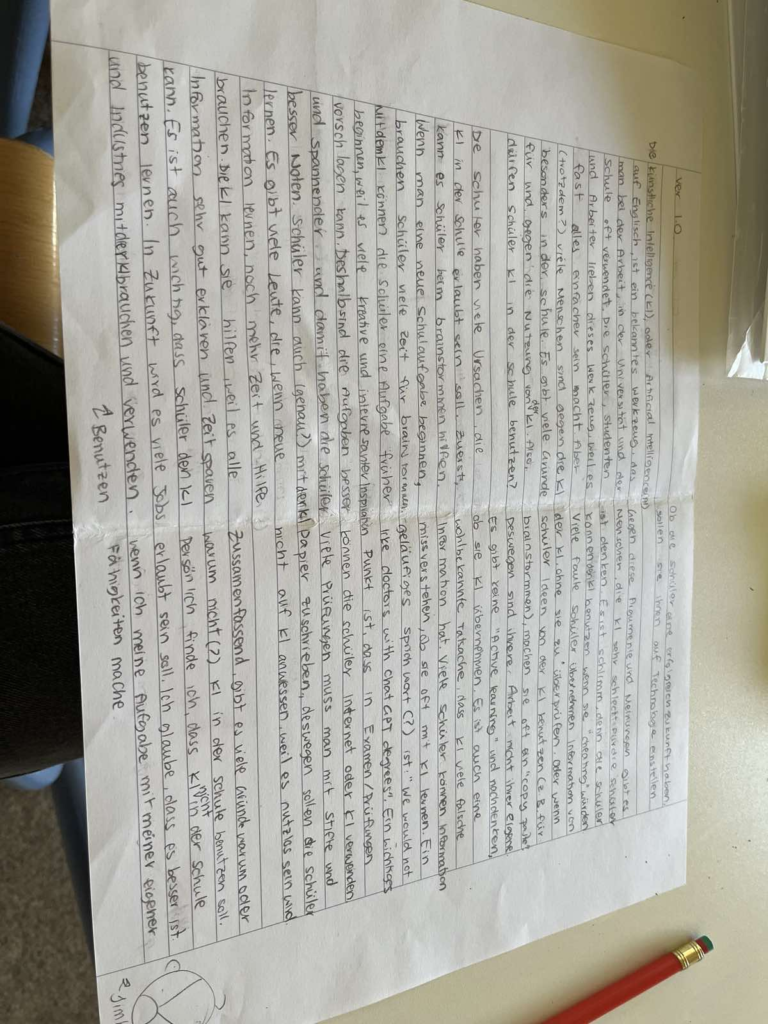 ver 1.0
Die künstliche Intelligenz (KI), oder Artificial Intelligence (AI)
auf Englisch, ist ein bekanntes Werkzeug, das
man bei der Arbeit, in der Universität und der
schule oft verwendet. Die schüler, studenten
und Arbeiter lieben dieses Werkzeug, weil es
fast alles einfacher sein macht. Aber
(trotzdem?) viele Menschen sind gegen die KI
besonders in der schule. Es gibt viele Gründe
für und gegen die Nutzung von der KI. Also,
dürfen schüler KI in der schule benutzen?
Die schüler haben viele Ursachen, die
KI in der schule erlaubt sein soll. Zuerst,
kann es schüler beim brainstormen hilfen.
Wenn man eine neue schulaufgabe beginnen,
brauchen schüler viele zeit für brainstormen.
Mit dem KI können die schüler eine Aufgabe früher
beginnen, weil es viele kreative und interresanter Inspiration
vorschlagen kann. Deshalb sind die Aufgaben besser
und spannender und damit haben die schüler
besser Noten. Schüler kann auch (genau?) mit der KI
lernen. Es gibt viele Leute, die, wenn neue
Information lernen, noch mehr zeit und Hilfe
brauchen. Die KI kann sie hilfen weil es alle
Information sehr gut erklären und zeit sparen
kann. Es ist auch wichtig, dass schüler den KI
benutzen lernen. In zukunft wird es viele Jobs
und Industries mit der KI brauchen und verwenden.
↑ Benutzen
Ob die schüler eine erfolgreich zukunft haben
sollen sie ihnen auf Technologie einstellen
Gegen diese Argumente und Meinungen gibt es
Menschen die KI sehr schlecht für die schüler
ist denken. Es ist schlimm, denn die schüler
können der KI benutzen wenn sie "cheating" würden
Viele faule schüler übernehmen Information von
der KI ohne sie zu überprüfen. Oder wenn
schüler Ideen von der KI benutzen (z.B für
brainstormen), machen sie oft ein "copy paste"
Deswegen sind ihrere Arbeit nicht ihrer eigene
Es gibt keine "active learning" und nachdenken,
ob sie KI übernehmen. Es ist auch eine
wohlbekannte Tatsache, dass KI viele falsche
Information hat. Viele schüler können Information
missverstehen, ob sie oft mit KI lernen. Ein
geläufiges sprichwort (?) ist "We would not
like doctors with chatGPT degrees". Ein wichtiges
Punkt ist, dass in Examen/Prüfungen
können die schüler Internet oder KI verwenden
viele Prüfungen muss man mit stifte und
Papier zuschrieben, deswegen sollen die schüler
nicht auf KI anwessen, weil es nutzlos sein wird.
Zusammenfassend, gibt es viele Gründe warum oder
warum nicht (?) KI in der schule benutzen soll.
Persönlich finde ich, dass KI nicht in der schule
erlaubt sein soll. Ich glaube, dass es besser ist
wenn ich meine Aufgabe mit meiner eigener
Fähigkeiten mache.